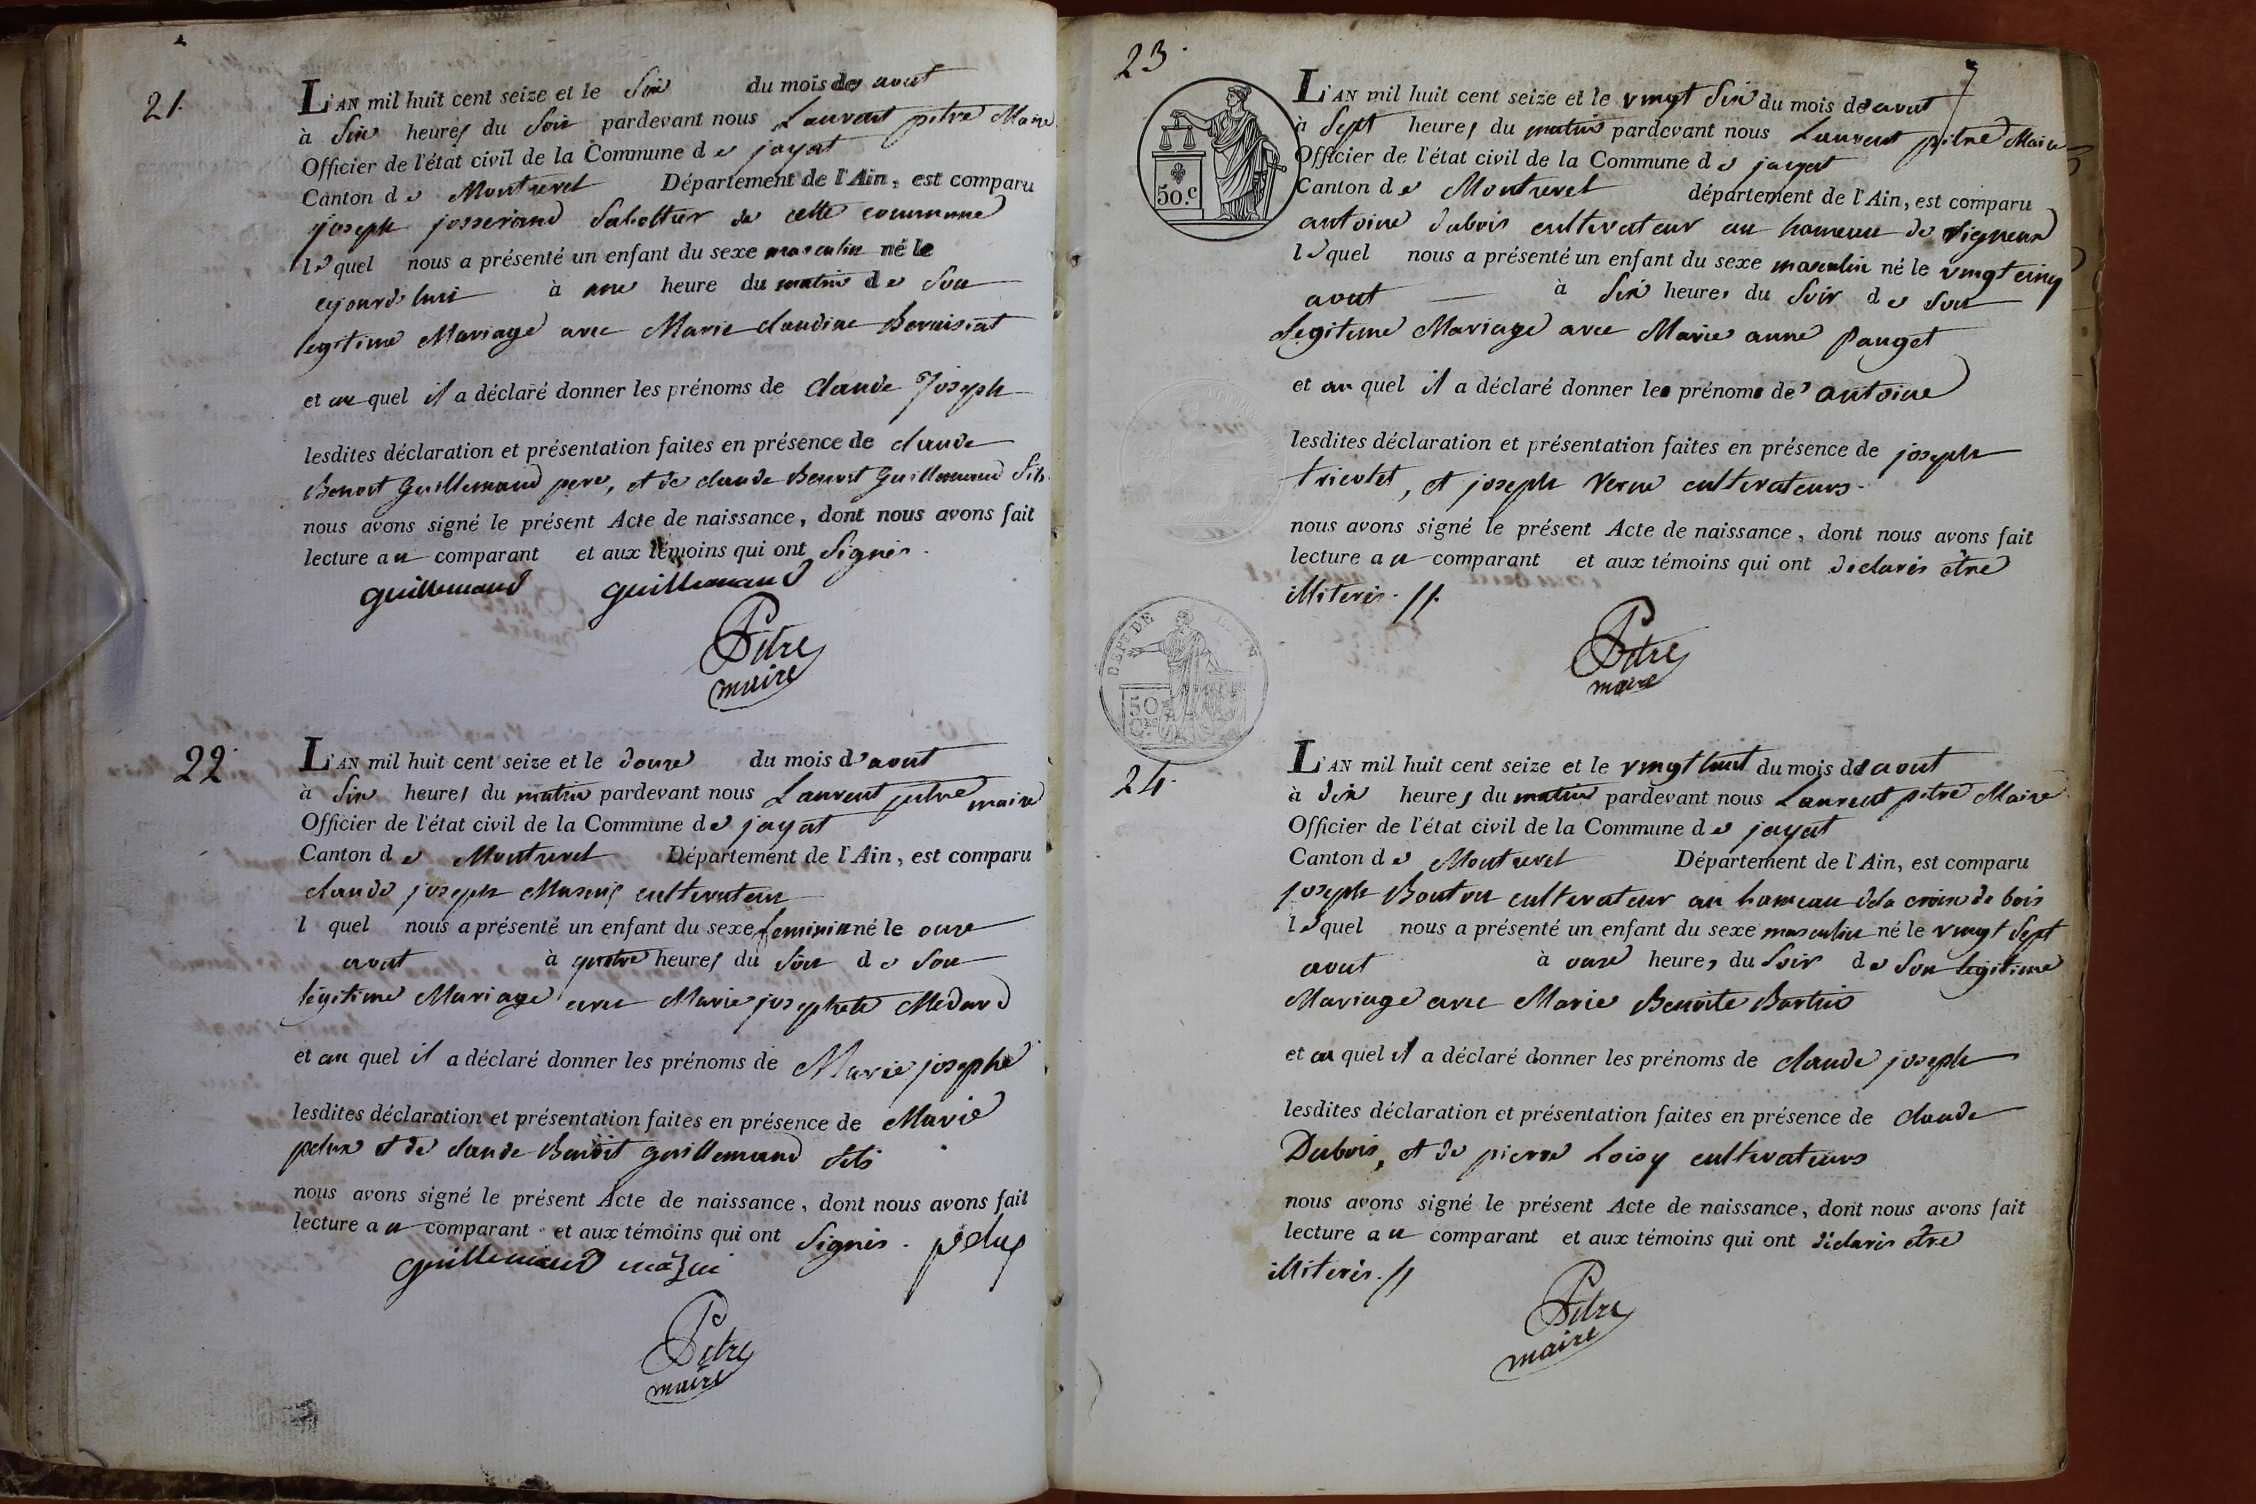 21.
L'AN mil huit cent seize et le six du mois de aout
à six heures du soir pardevant nous Laurent pitre Maire
Officier de l'état civil de la Commune de jayat
Canton de Montrevel Département de l'Ain, est comparu
joseph josserand Sabottier de cette commune
lequel nous a présenté un enfant du sexe masculin né le
ajourdhui à une heure du matin de Son
legitime Mariage avec Marie claudine
et au quel il a déclaré donner les prénoms de claude Joseph
lesdites déclaration et présentation faites en présence de claude
Benoit Guillemaud pere, et de claude Benoit Guillemaud fils
nous avons signé le présent Acte de naissance, dont nous avons fait
lecture au comparant et aux témoins qui ont Signés.
guillemaud guillemaud
Pitre
maire
22.
L'AN mil huit cent seize et le douze du mois d'aout
à six heures du matin pardevant nous Laurent pitre maire
Officier de l'état civil de la Commune de jayat
Canton de Montrevel Département de l'Ain, est comparu
claude joseph cultivateur
l quel nous a présenté un enfant du sexe feminin né le onze
aout à quatre heures du soir de Son
légitime Mariage avec Marie josephete Medard
et au quel il a déclaré donner les prénoms de Marie josephe
lesdites déclaration et présentation faites en présence de Marie
pelux et de claude Benoit guillemaud fils
nous avons signé le présent Acte de naissance, dont nous avons fait
lecture au comparant et aux témoins qui ont Signés. pelux
guillemaud
Pitre
maire
23.
7
50.C
L'AN mil huit cent seize et le vingt six du mois de aout
à Sept heures du matin pardevant nous Laurent pitre Maire
Officier de l'état civil de la Commune de jayat
Canton de Montrevel département de l'Ain, est comparu
antoine dubois cultivateur au hameau de vigneux
lequel nous a présenté un enfant du sexe masculin né le vingt cinq
aout à six heures du soir de son
Legitime Mariage avec Marie anne Pauget
et au quel il a déclaré donner les prénoms de antoine
lesdites déclaration et présentation faites en présence de joseph
tricotet, et joseph Verne cultivateurs.
nous avons signé le présent Acte de naissance, dont nous avons fait
lecture au comparant et aux témoins qui ont declarés être
illiterés.
Pitre
maire
DEPT DE L'AIN
50 Cmes
24.
L'AN mil huit cent seize et le vingt huit du mois de aout
à dix heures du matin pardevant nous Laurent pitre Maire
Officier de l'état civil de la Commune de jayat
Canton de Montrevel Département de l'Ain, est comparu
joseph Bouton cultivateur au hameau dela croix de bois
lequel nous a présenté un enfant du sexe masculin né le vingt Sept
aout à onze heures du Soir de Son legitime
Mariage avec Marie Benoite Bertin
et au quel il a déclaré donner les prénoms de claude joseph
lesdites déclaration et présentation faites en présence de claude
Dubois, et de pierre Loisy cultivateurs
nous avons signé le présent Acte de naissance, dont nous avons fait
lecture au comparant et aux témoins qui ont déclarés etre
illiterés.
Pitre
maire